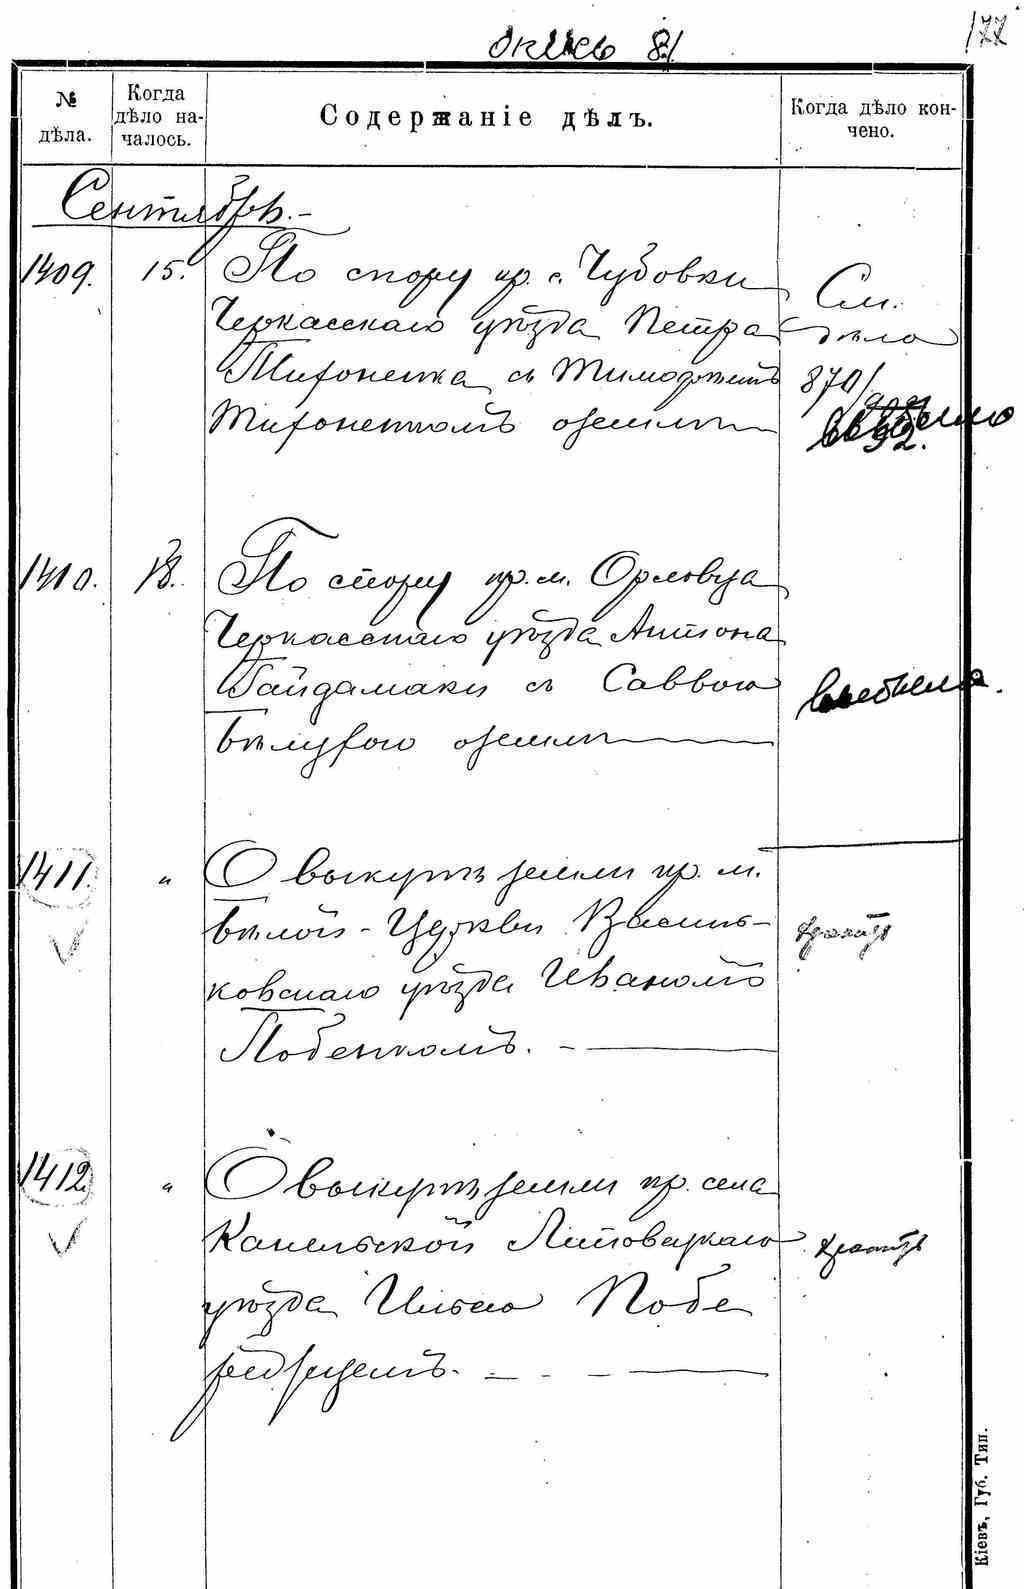 опись 81.
177
№ дѣла.
Когда дѣло началось.
Содержаніе дѣлъ.
Когда дѣло кончено.
Сентябрь.-
1409. 15. По спору кр. с. Чубовки
Черкасскаго уѣзда Петра
Мироненка съ Тимофеемъ
Мироненкомъ о землѣ
См.
дѣло
870/
92.
выбыло
1410. 18. По спору кр. м. Орловца
Черкасскаго уѣзда Антона
Гайдамаки съ Саввою
Бѣлугою о землѣ
выбыло.
1411. " О выкупѣ земли кр. м.
Бѣлой-Церкви Василь-
ковскаго уѣзда Иваномъ
Бабенкомъ. -
хранить
1412. " О выкупѣ земли кр. села
Канельской Липовецкаго
уѣзда Ильею Побе
режцемъ. -
хранить
Кіевъ, Губ. Тип.